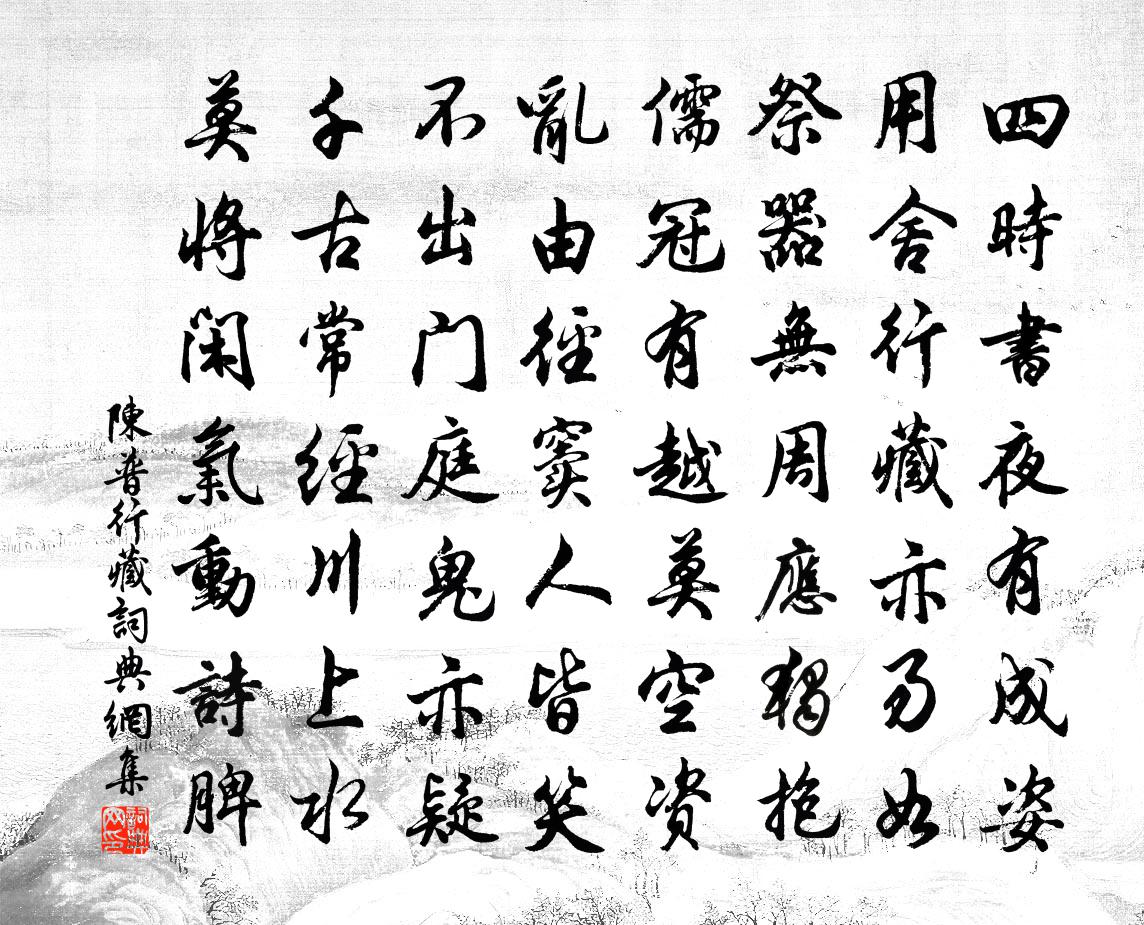 四時書夜有成姿
用舍行藏亦易如
祭器無周應獨抱
儒冠有越莫空資
亂由徑竇人皆笑
不出門庭鬼亦疑
千古常經川上水
莫將閑氣動詩脾
陳普行藏詞典網集